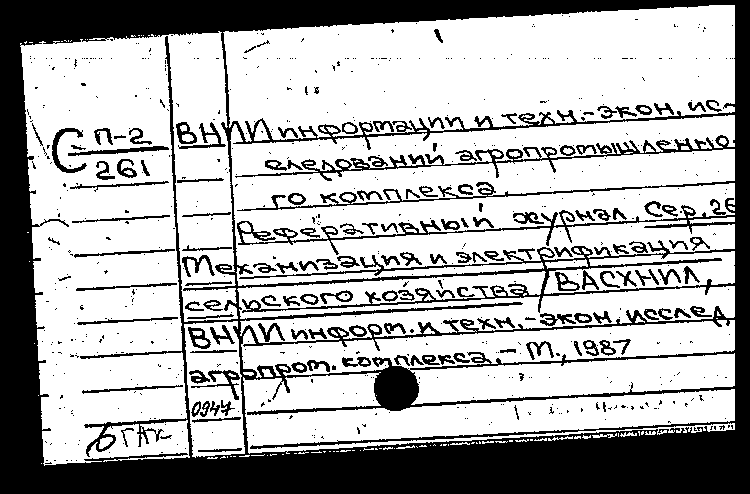 С П-2
261
ВНИИ информации и техн.-экон. ис-
следований агропромышленно-
го комплекса.
Реферативный журнал. Сер. 26
Механизация и электрификация
сельского хозяйства / ВАСХНИЛ,
ВНИИ информ. и техн.-экон. исслед.
агропром. комплекса. - М., 1987
0947